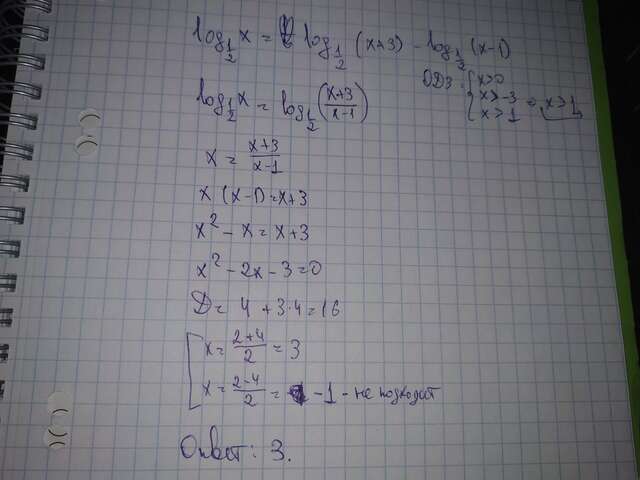 log_{1/2} x = log_{1/2} (x+3) - log_{1/2} (x-1)
ОДЗ: { x>0
x>-3
x>1 => x>1
log_{1/2} x = log_{1/2} ((x+3)/(x-1))
x = (x+3)/(x-1)
x (x-1) = x+3
x² - x = x+3
x² - 2x - 3 = 0
D = 4 + 3·4 = 16
[ x = (2+4)/2 = 3
x = (2-4)/2 = -1 - не подходит
Ответ: 3.